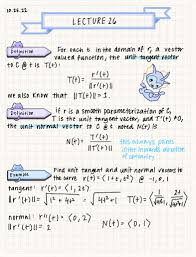 10.25.22
LECTURE 26
Definition
For each t in the domain of r, a vector
valued function, the unit tangent vector
to C @ t is T(t)
T(t) = r'(t) / ||r'(t)||
we also know that ||T(t)|| = 1.
Definition
If r is a smooth parameterization of C,
T is the unit tangent vector, and T' ≠ 0,
the unit normal vector to C @ t noted N(t) is
N(t) = T'(t) / ||T'(t)||
this always points
in the inwards direction
of concavity
Example
Find unit tangent and unit normal vectors to
the curve r(t) =
tangent: r'(t) = ⟨1, 2t⟩
||r'(t)|| =
T(t) =
normal: r''(t) = ⟨0, 2⟩
||r''(t)|| = 2
N(t) = ⟨0, 1⟩